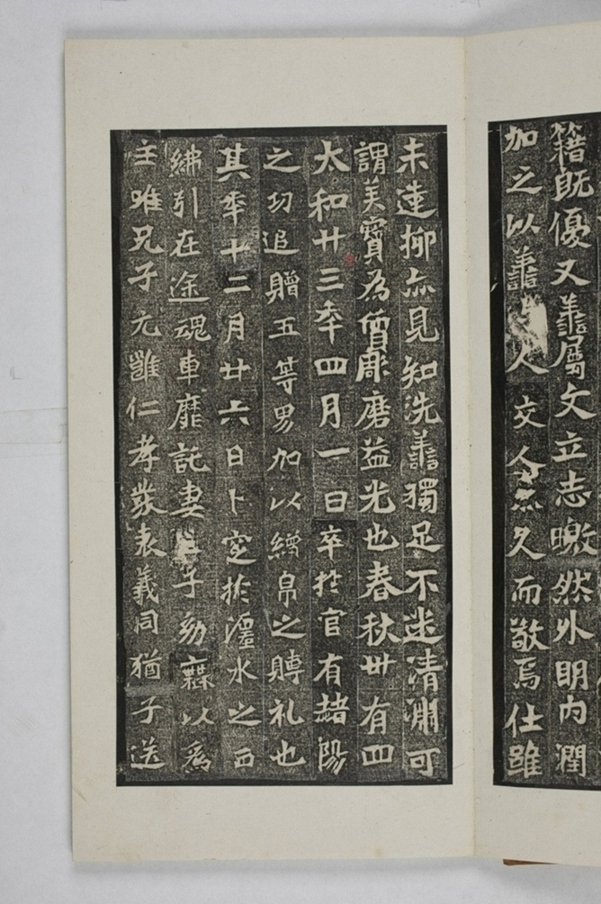 籍既優又善屬文立志曒然外明内潤
加之以善人交人亦久而敬焉仕雖
未達抑亦見知洗善獨足不迷清渊可
謂美寶為質彫磨益光也春秋卌有四
太和廿三年四月一日卒於官有赭陽
之功追贈五等男加以繒帛之賻礼也
其年十二月廿六日卜窆於瀍水之西
紼引在途魂車靡託妻子幼寡以為
主唯兄子元雝仁孝發衷義同猶子送